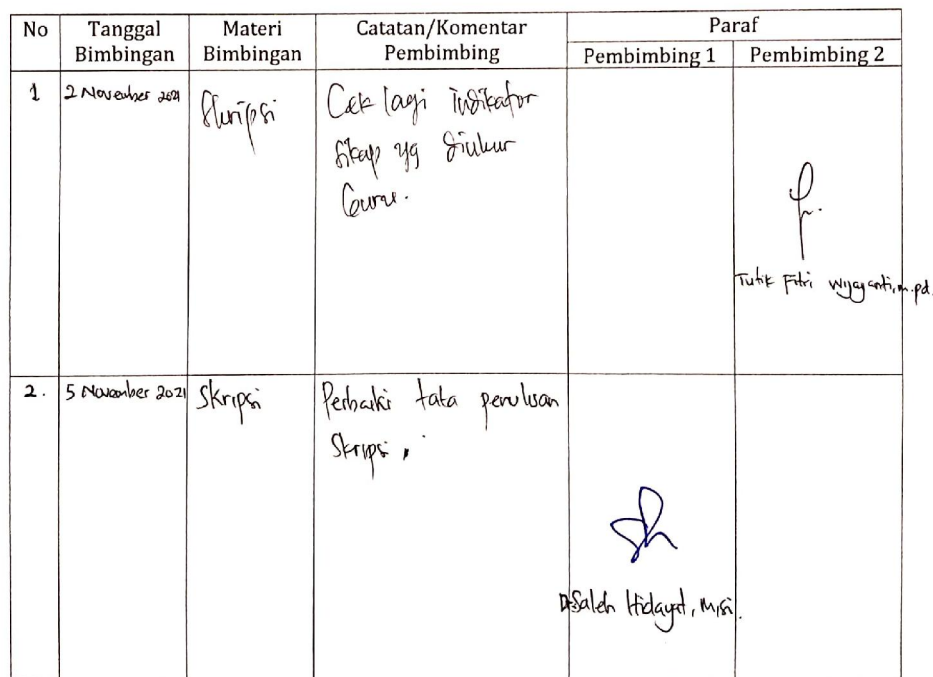 No Tanggal Bimbingan Materi Bimbingan Catatan/Komentar Pembimbing Paraf
Pembimbing 1 Pembimbing 2
1 2 November 2021 Skripsi Cek lagi indikator
sikap yg diukur
Guru.
Tutik Fitri Wijayanti, M.pd.
2. 5 November 2021 Skripsi Perbaiki tata penulisan
Skripsi,
Dr. Saleh Hidayat, M,si.